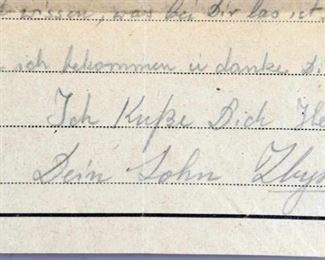 wissen, was bei Dir las ist
ich bekommen u danke Di
Ich Kuße Dich He
Dein Sohn Zbys